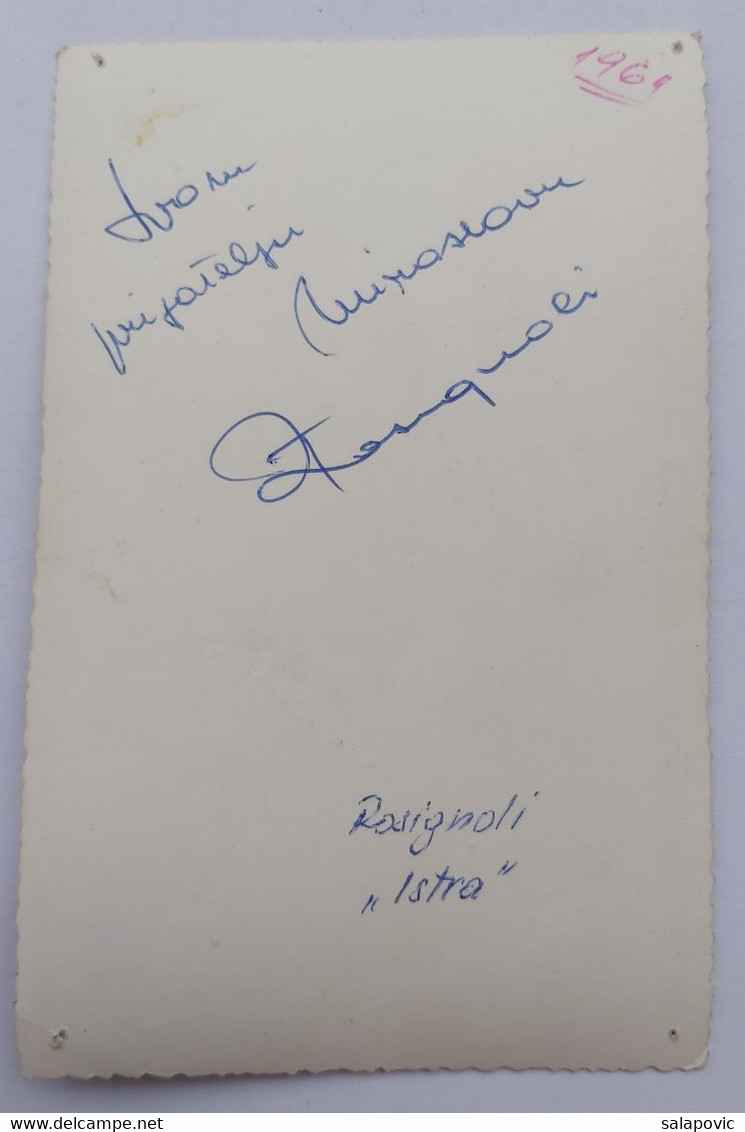 1964
svom
prijatelju Miroslavu
Rosignoli
Rosignoli
„Istra”
delcampe.net
salapovic